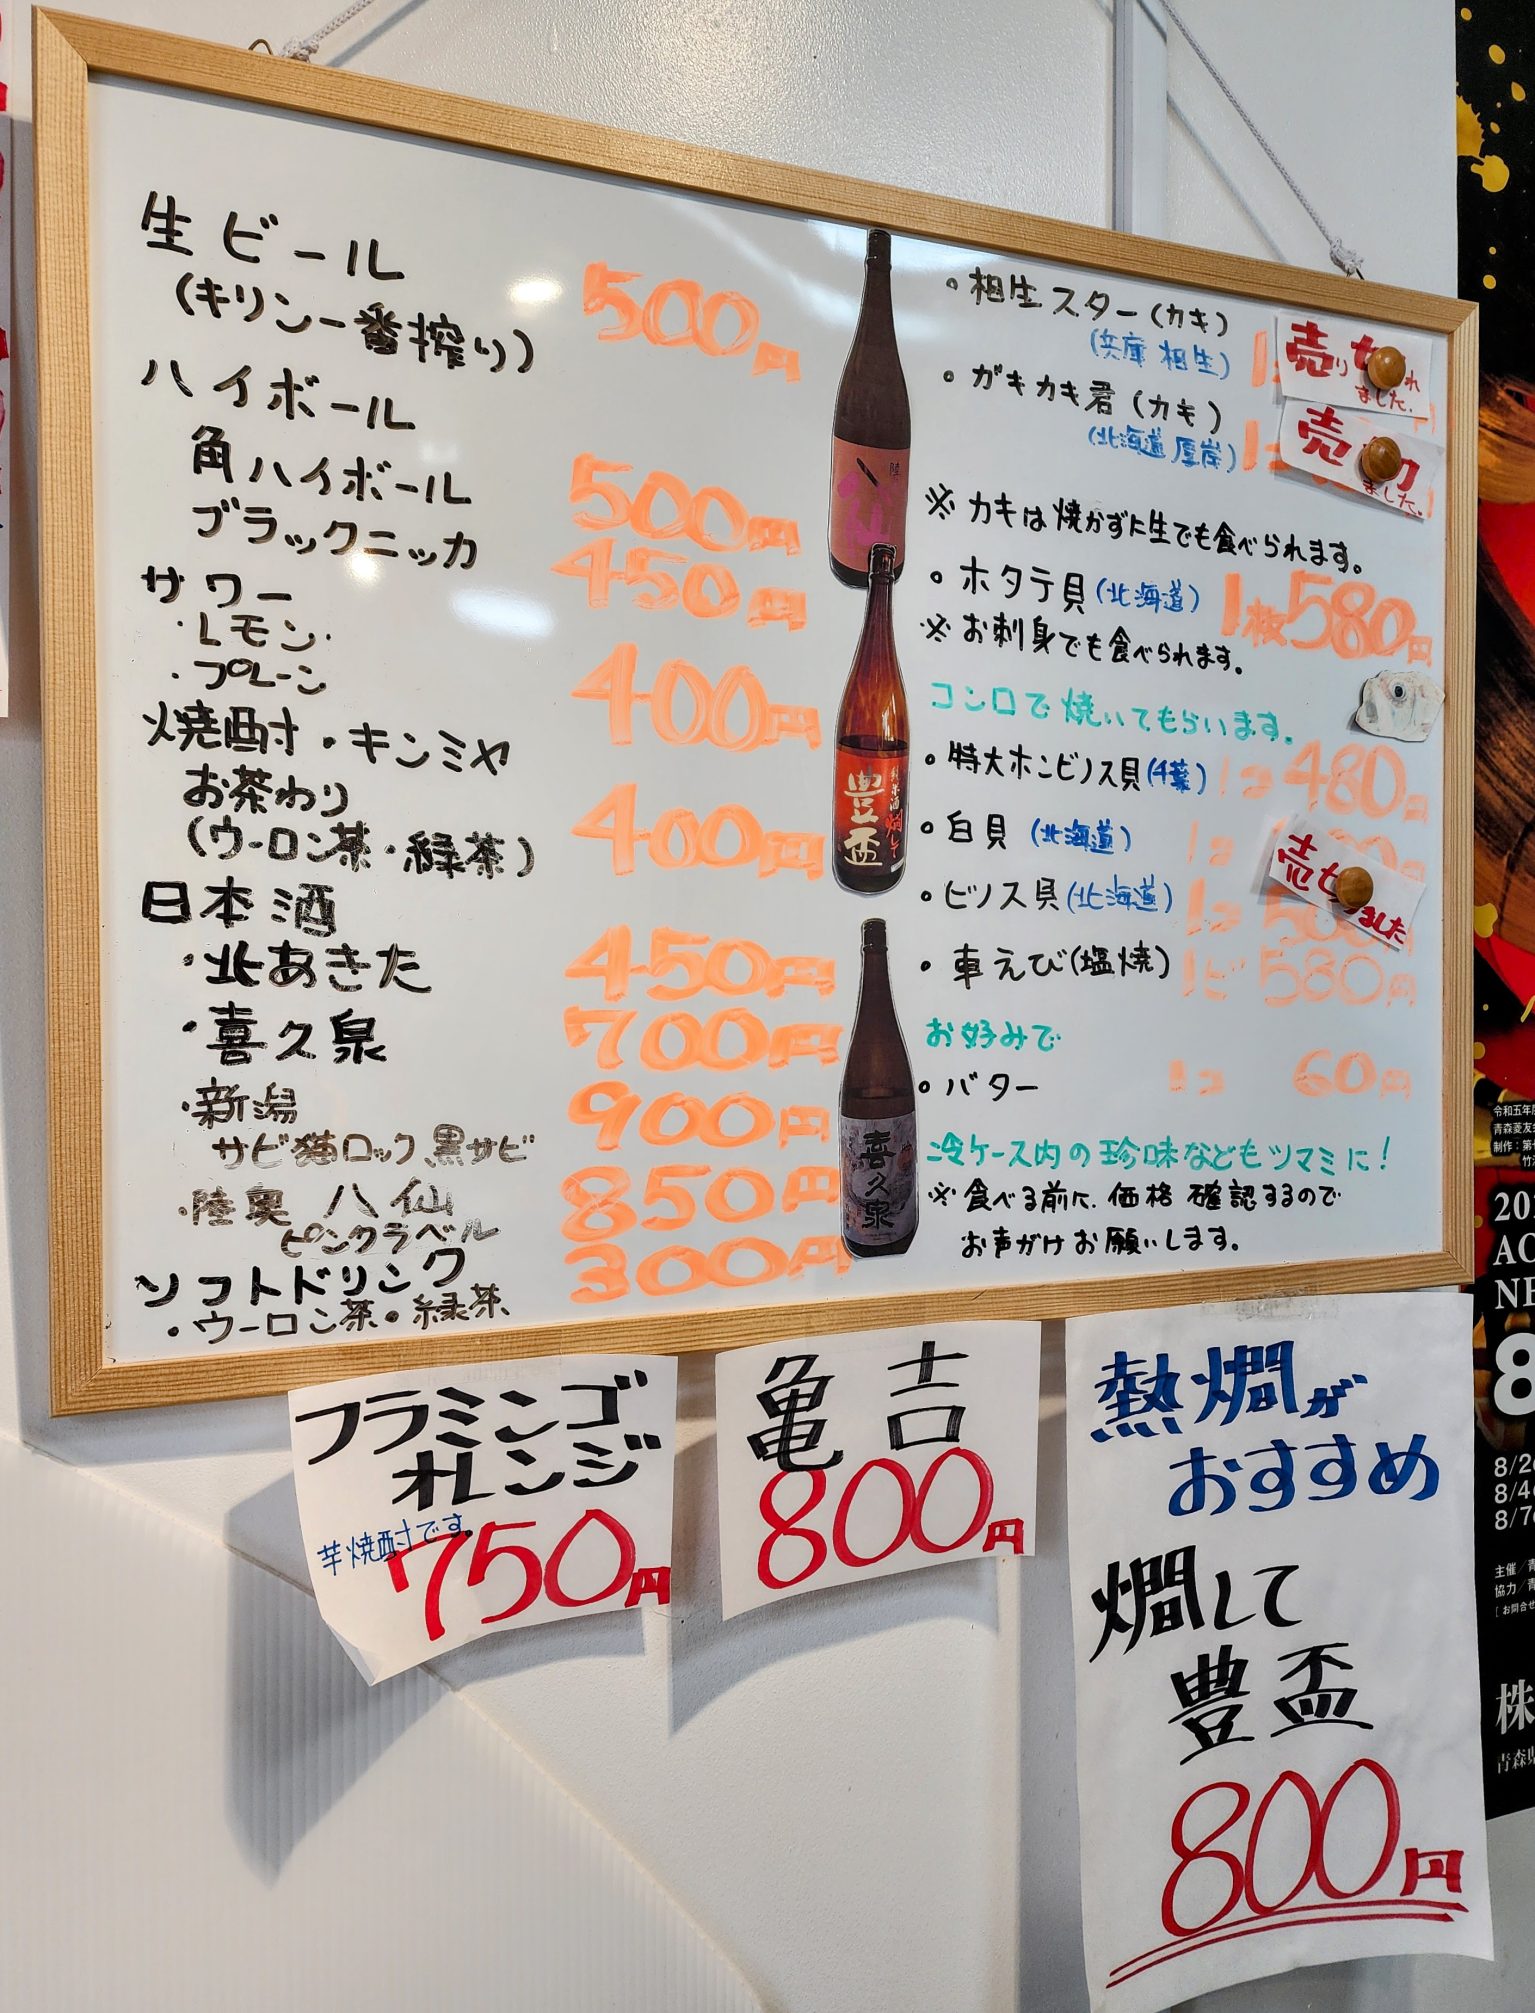 生ビール
(キリン一番搾り) 500円
ハイボール
角ハイボール 500円
ブラックニッカ 450円
サワー
・レモン・
・プレーン 400円
焼酎・キンミヤ
お茶わり
(ウーロン茶・緑茶) 400円
日本酒
・北あきた 450円
・喜久泉 700円
・新潟 900円
サビ猫ロック、黒サビ
・陸奥 八仙 850円
ピンクラベル
ソフトドリンク 300円
・ウーロン茶・緑茶
陸
八仙
純米酒 燗して
豊盃
喜久泉
・相生スター(カキ)
(兵庫 相生)
売り切れ
ました.
・ガキカキ君(カキ)
(北海道 厚岸)
売切
ました.
※カキは焼かずに生でも食べられます。
・ホタテ貝(北海道) 1枚580円
※お刺身でも食べられます。
コンロで焼いてもらいます。
・特大ホンビノス貝(千葉) 1コ 480円
・白貝 (北海道) 1コ
売切
ました
・ビノス貝(北海道) 1コ
・車えび(塩焼) 1ピ 580円
お好みで
・バター 1コ 60円
冷ケース内の珍味などもツマミに!
※食べる前に、価格確認するので
お声がけお願いします。
フラミンゴ
オレンジ
芋焼酎です。
750円
亀吉
800円
熱燗が
おすすめ
燗して
豊盃
800円
令和五年
青森菱友会
制作:第
竹
AC
NE
8
8/2
8/4
8/7
主催/青
協力/青
[お問合せ
株
青森県